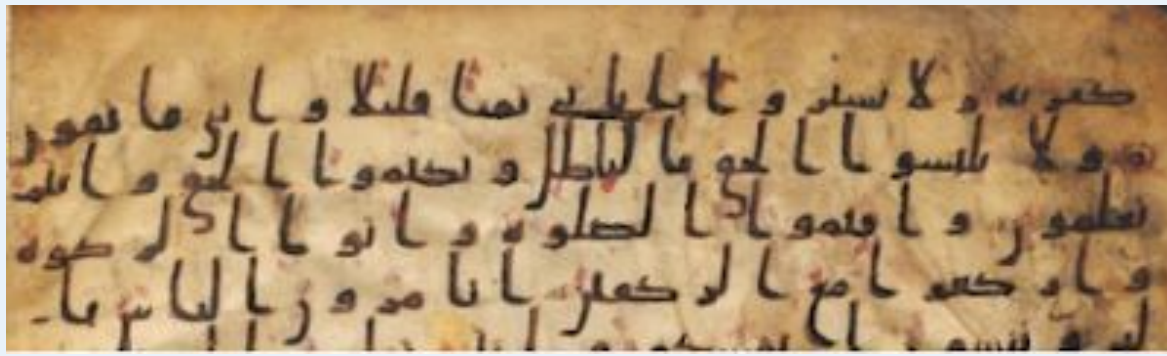 كفر به ولا تشتروا بايتي ثمنا قليلا وايي فاتقون
ولا تلبسوا الحق بالبطل وتكتموا الحق وانتم
تعلمون واقيموا الصلوه واتوا الزكوه
واركعوا مع الركعين اتامرون الناس با
لبر وتنسون انفسكم